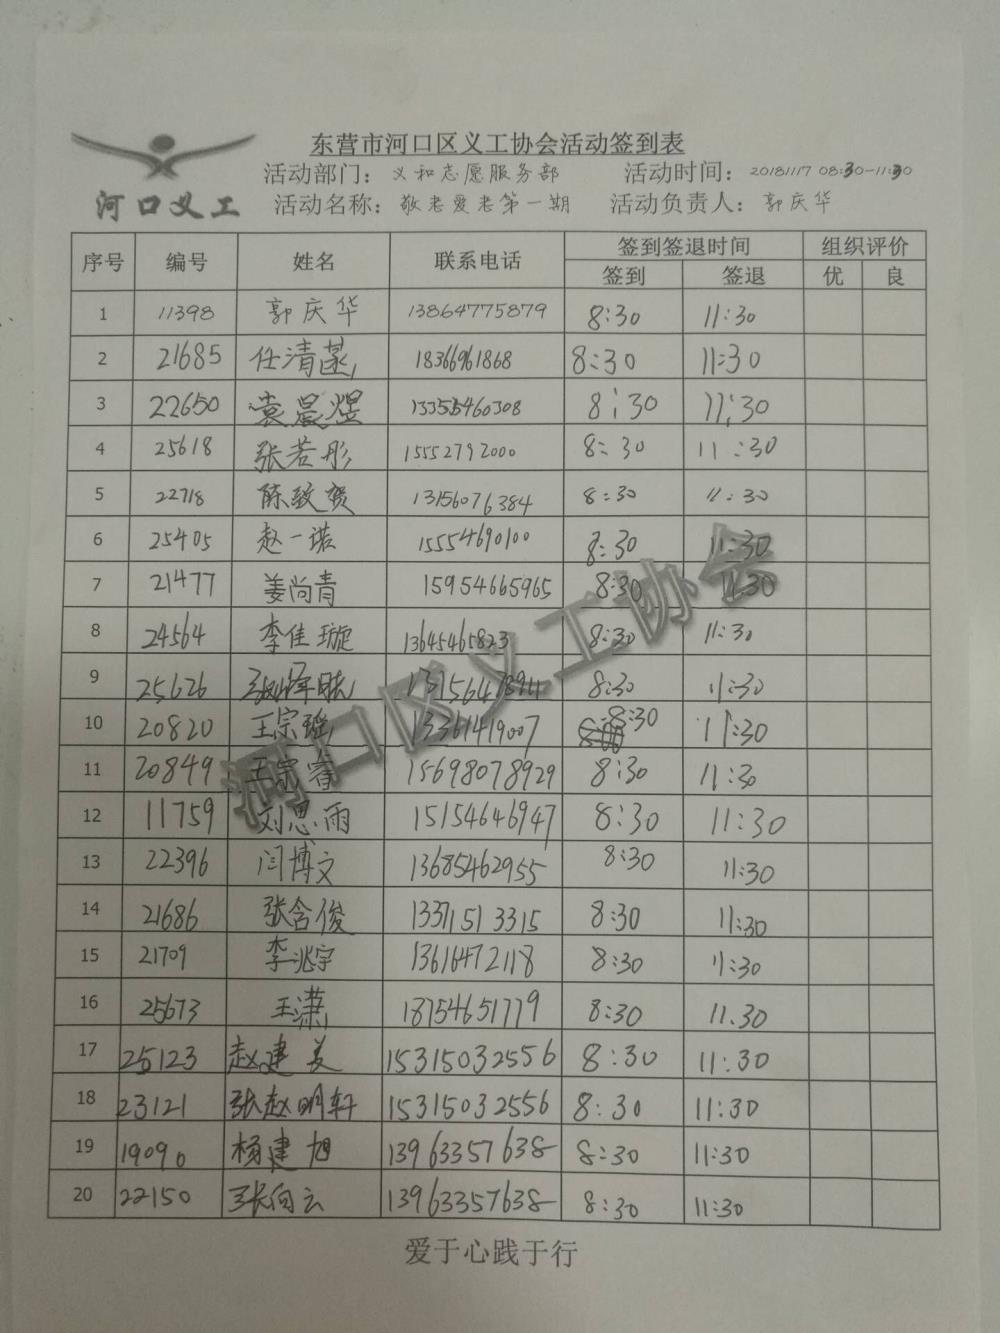 东营市河口区义工协会活动签到表
河口义工
活动部门：义和志愿服务部 活动时间：20181117 08:30-11:30
活动名称：敬老爱老第一期 活动负责人：郭庆华
序号 编号 姓名 联系电话 签到签退时间 组织评价
签到 签退 优 良
1 11398 郭庆华 13864775879 8:30 11:30
2 21685 任清菡 18366961868 8:30 11:30
3 22650 袁晨煜 13355460308 8:30 11:30
4 25618 张若彤 15552792000 8:30 11:30
5 22718 陈致贺 13156076384 8:30 11:30
6 25405 赵一诺 15554690100 8:30 11:30
7 21477 姜尚青 15954665965 8:30 11:30
8 24564 李佳璇 13645465823 8:30 11:30
9 25626 8:30 11:30
10 20820 王宗瑶 13361419007 8:30 11:30
11 20849 王宗睿 15698078929 8:30 11:30
12 11759 刘思雨 15154646947 8:30 11:30
13 22396 闫博文 13685462955 8:30 11:30
14 21686 张含俊 13371513315 8:30 11:30
15 21709 李兆宇 13616472118 8:30 11:30
16 25673 王潇 18754651779 8:30 11.30
17 25123 赵建美 15315032556 8:30 11:30
18 23121 张赵明轩 15315032556 8:30 11:30
19 19090 杨建旭 13963357638 8:30 11:30
20 22150 张向云 13963357638 8:30 11:30
河口区义工协会
爱于心践于行